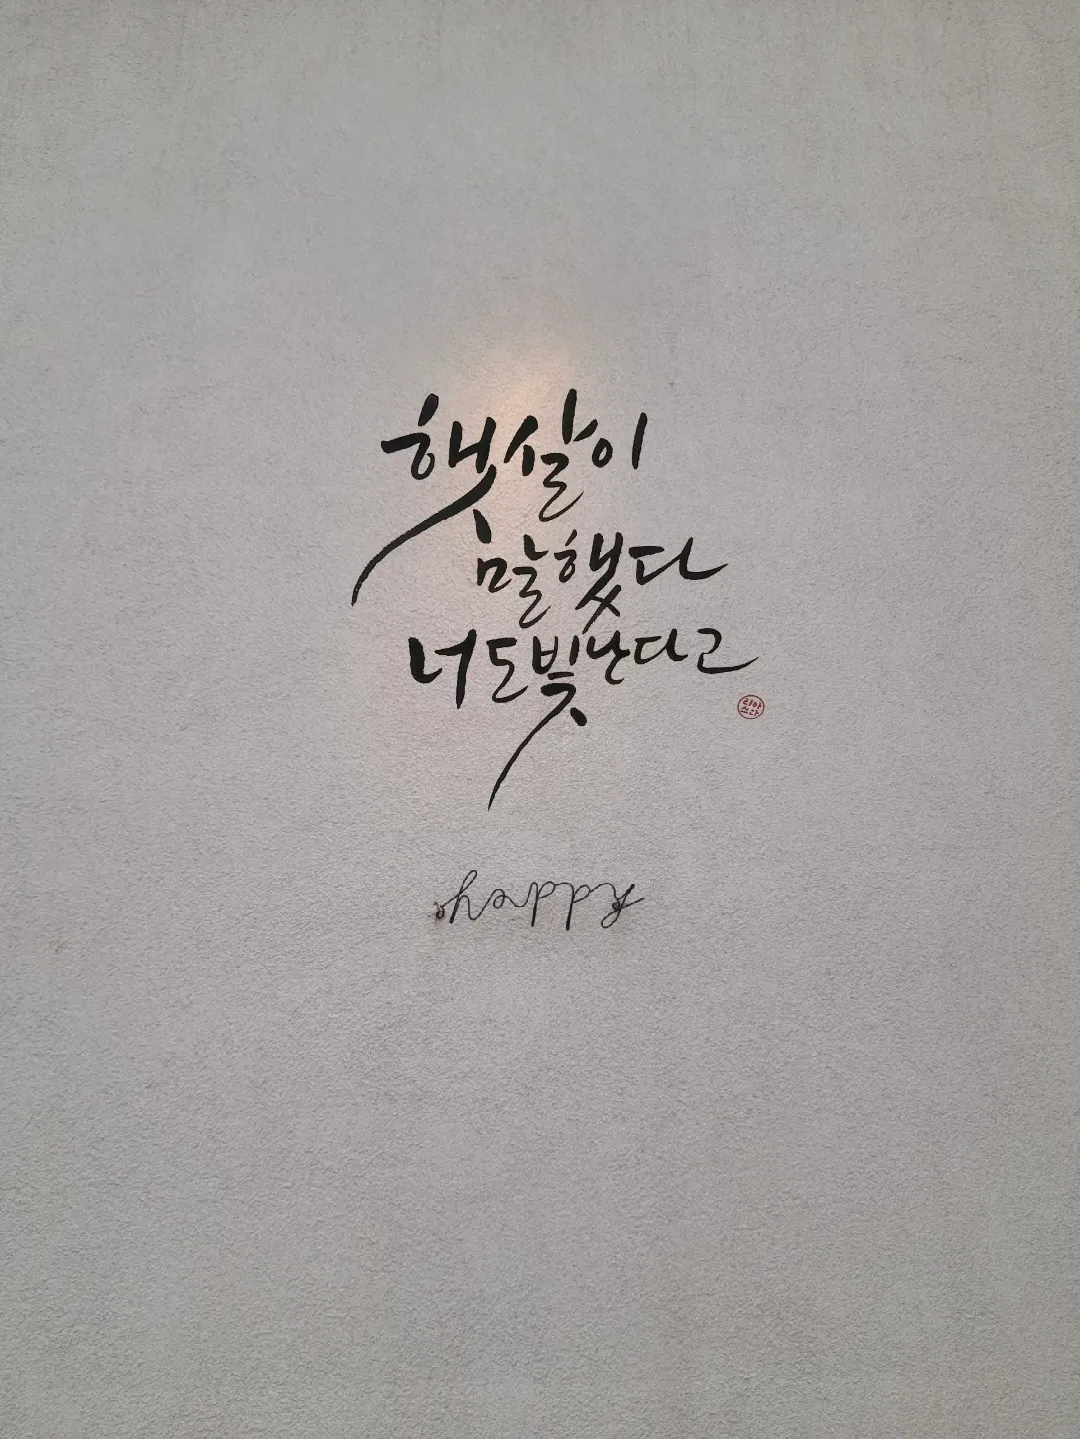 햇살이
말했다
너도 빛난다고
happy